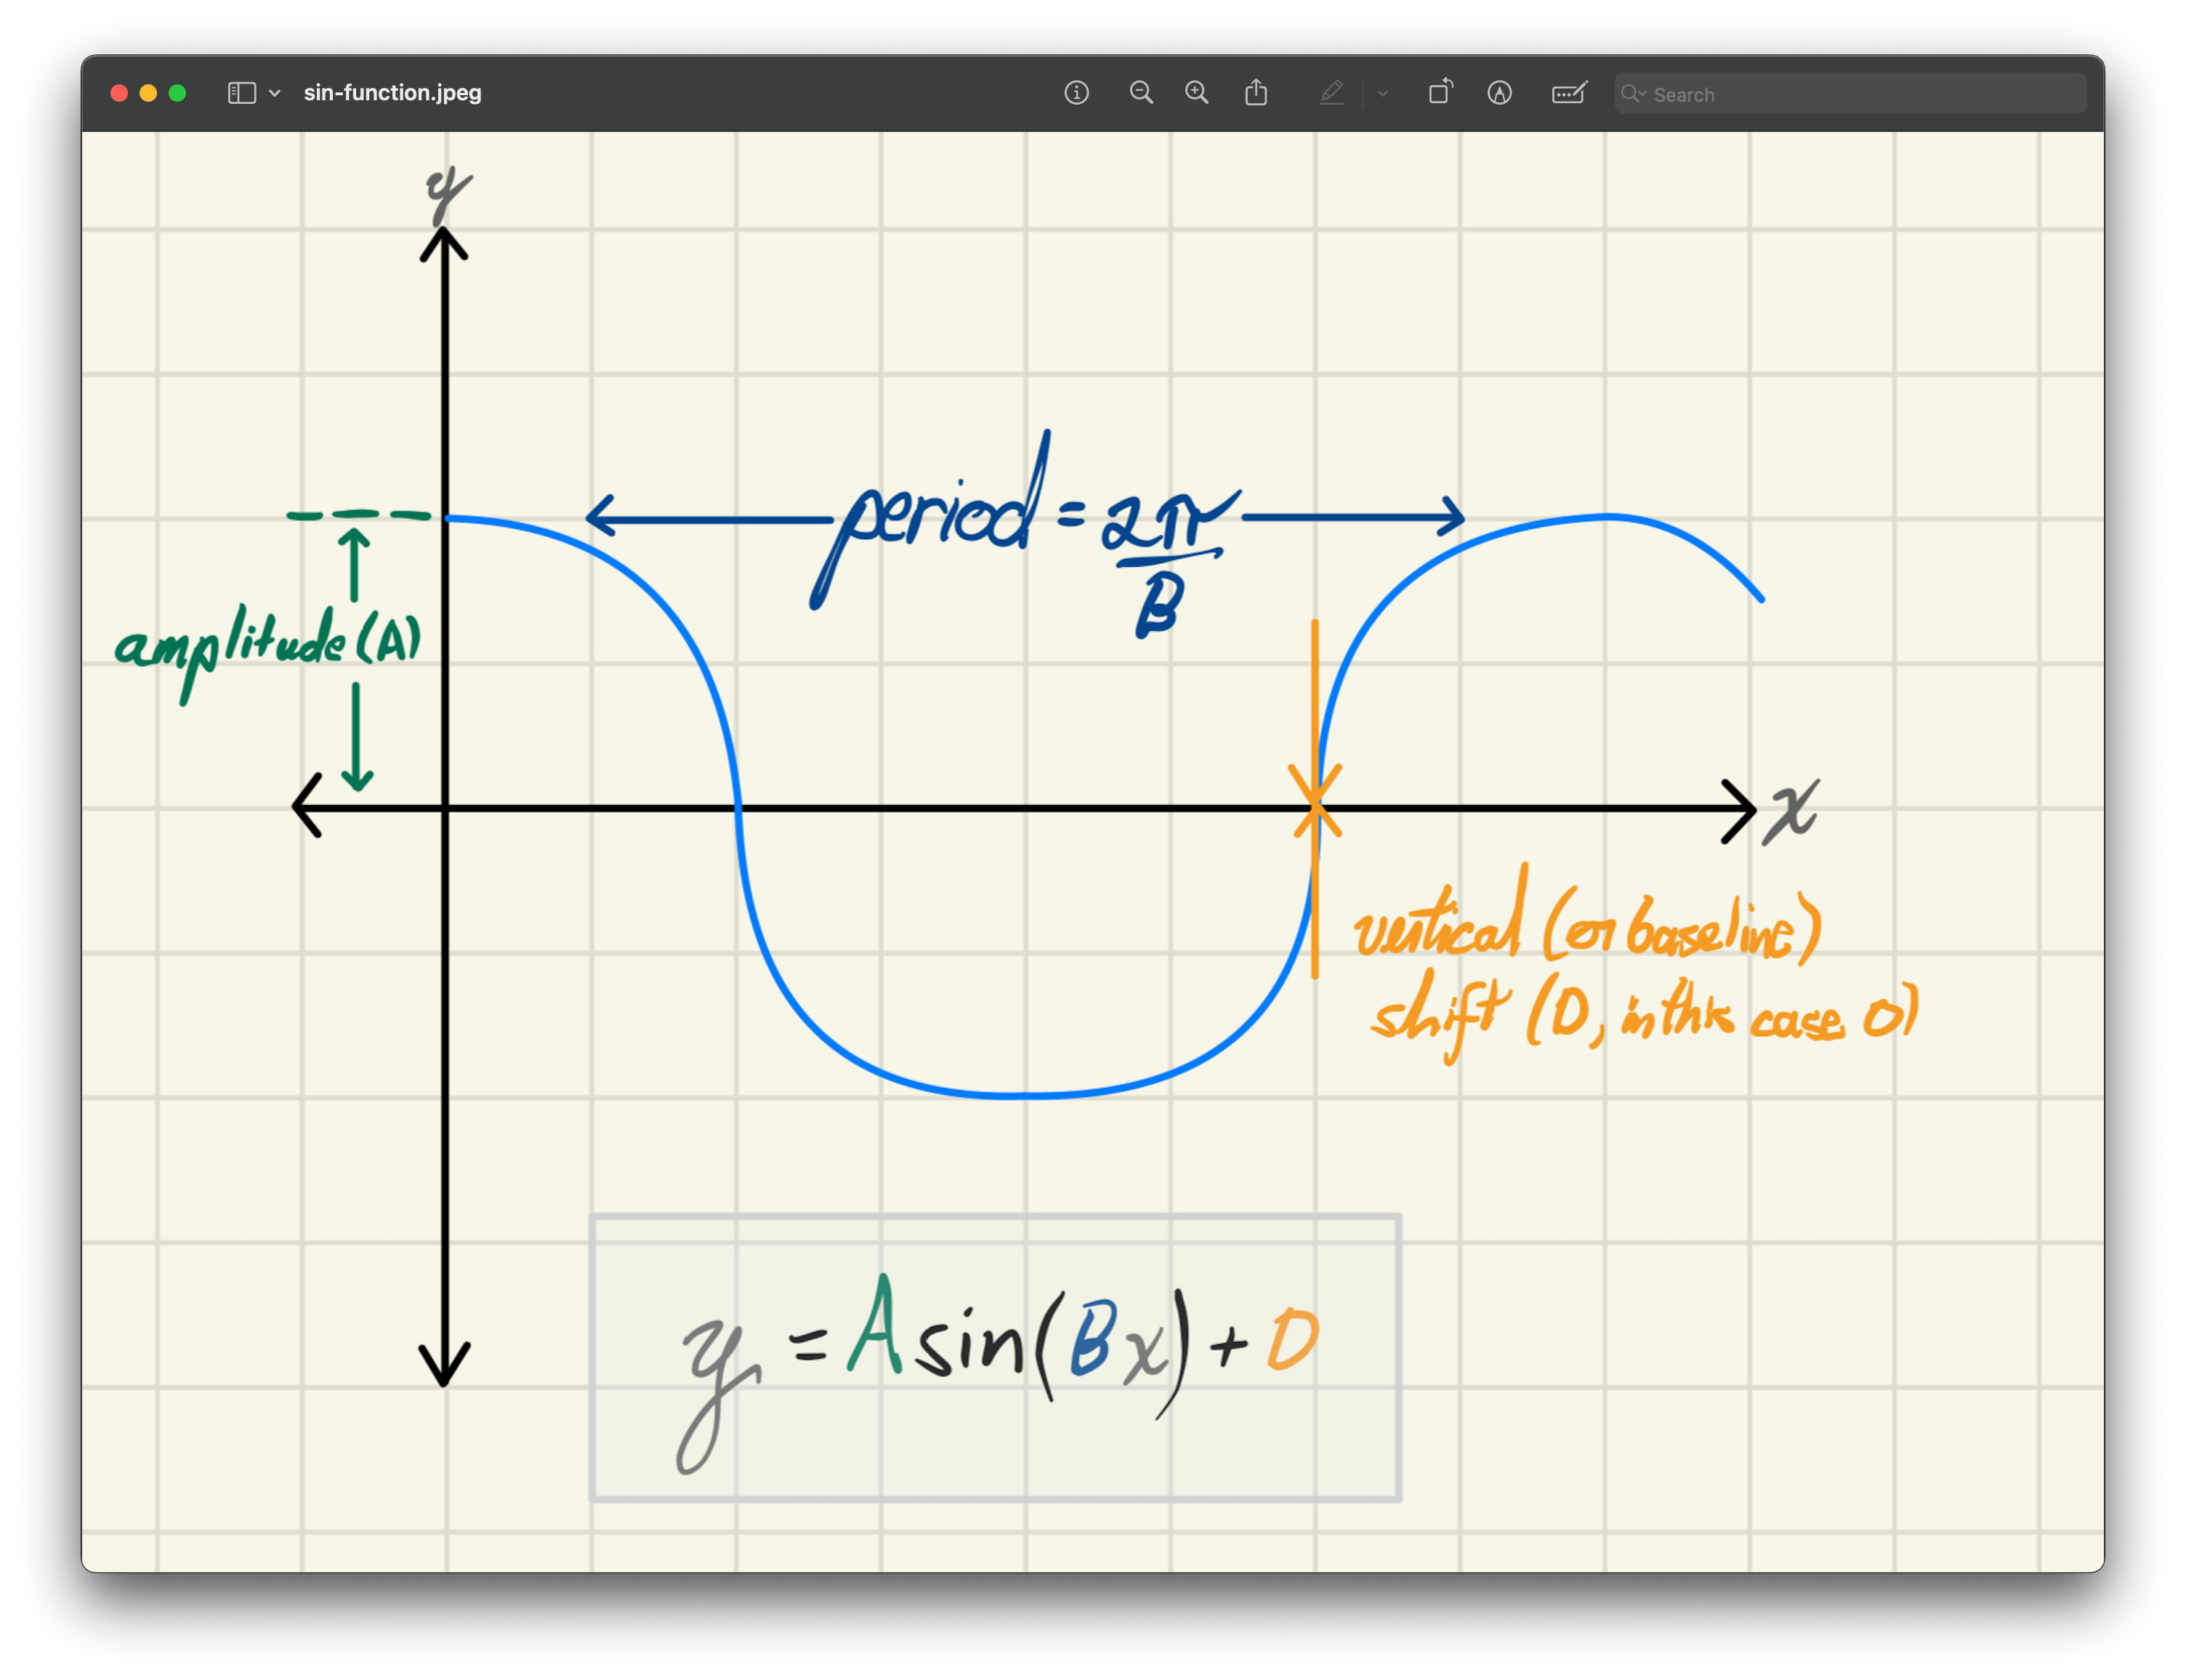 sin-function.jpeg
Search
y
period = 2π
B
amplitude (A)
x
vertical (or baseline)
shift (D, in this case 0)
y = A sin(Bx) + D